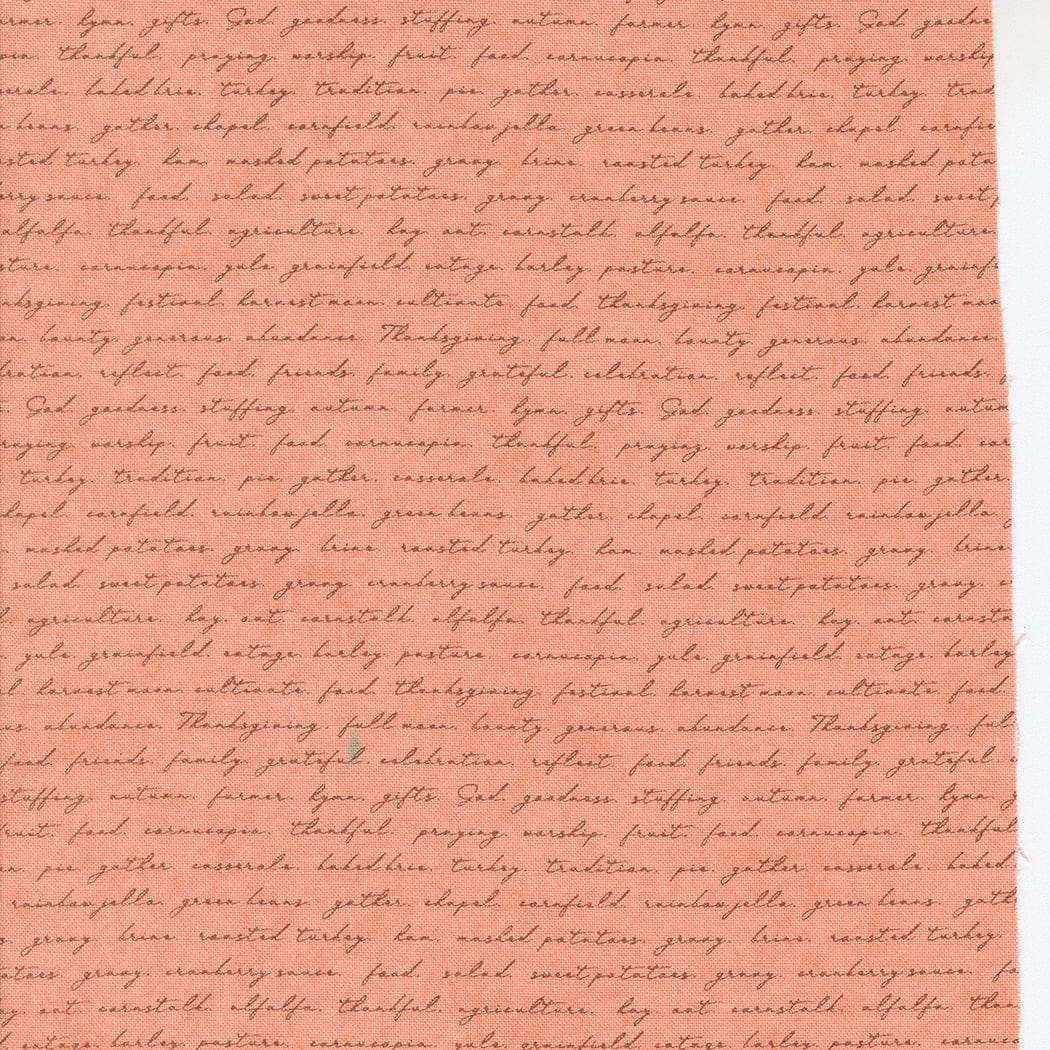 farmer. hymn. gifts. God. goodness. stuffing. autumn. farmer. hymn. gifts. God.
thankful. praying. worship. fruit. food. cornucopia. thankful. praying. worship
baked brie. turkey. tradition. pie. gather. casserole. baked brie. turkey.
beans. gather. chapel. cornfield. rainbow jello. green beans. gather. chapel.
turkey. ham. mashed potatoes. gravy. brine. roasted turkey. ham. mashed
sauce. food. salad. sweet potatoes. gravy. cranberry sauce. food. salad. sweet
alfalfa. thankful. agriculture. hay. oat. cornstalk. alfalfa. thankful. agriculture.
cornucopia. yule. grainfield. eatage. barley. pasture. cornucopia. yule.
festival. harvest moon. cultivate. food. thanksgiving. festival. harvest
bounty. generous. abundance. Thanksgiving. full moon. bounty. generous. abundance.
reflect. food. friends. family. grateful. celebration. reflect. food. friends.
God. goodness. stuffing. autumn. farmer. hymn. gifts. God. goodness. stuffing.
praying. worship. fruit. food. cornucopia. thankful. praying. worship. fruit. food.
turkey. tradition. pie. gather. casserole. baked brie. turkey. tradition. pie. gather.
chapel. cornfield. rainbow jello. green beans. gather. chapel. cornfield. rainbow jello.
mashed potatoes. gravy. brine. roasted turkey. ham. mashed potatoes. gravy. brine.
salad. sweet potatoes. gravy. cranberry sauce. food. salad. sweet potatoes. gravy.
agriculture. hay. oat. cornstalk. alfalfa. thankful. agriculture. hay. oat.
yule. grainfield. eatage. barley. pasture. cornucopia. yule. grainfield. eatage. barley
harvest moon. cultivate. food. thanksgiving. festival. harvest moon. cultivate. food.
abundance. Thanksgiving. full moon. bounty. generous. abundance. Thanksgiving.
food. friends. family. grateful. celebration. reflect. food. friends. family. grateful.
stuffing. autumn. farmer. hymn. gifts. God. goodness. stuffing. autumn. farmer. hymn.
fruit. food. cornucopia. thankful. praying. worship. fruit. food. cornucopia. thankful
pie. gather. casserole. baked brie. turkey. tradition. pie. gather. casserole. baked
rainbow jello. green beans. gather. chapel. cornfield. rainbow jello. green beans.
gravy. brine. roasted turkey. ham. mashed potatoes. gravy. brine. roasted turkey.
gravy. cranberry sauce. food. salad. sweet potatoes. gravy. cranberry sauce.
oat. cornstalk. alfalfa. thankful. agriculture. hay. oat. cornstalk. alfalfa.
eatage. barley. pasture. cornucopia. yule. grainfield. eatage. barley. pasture.